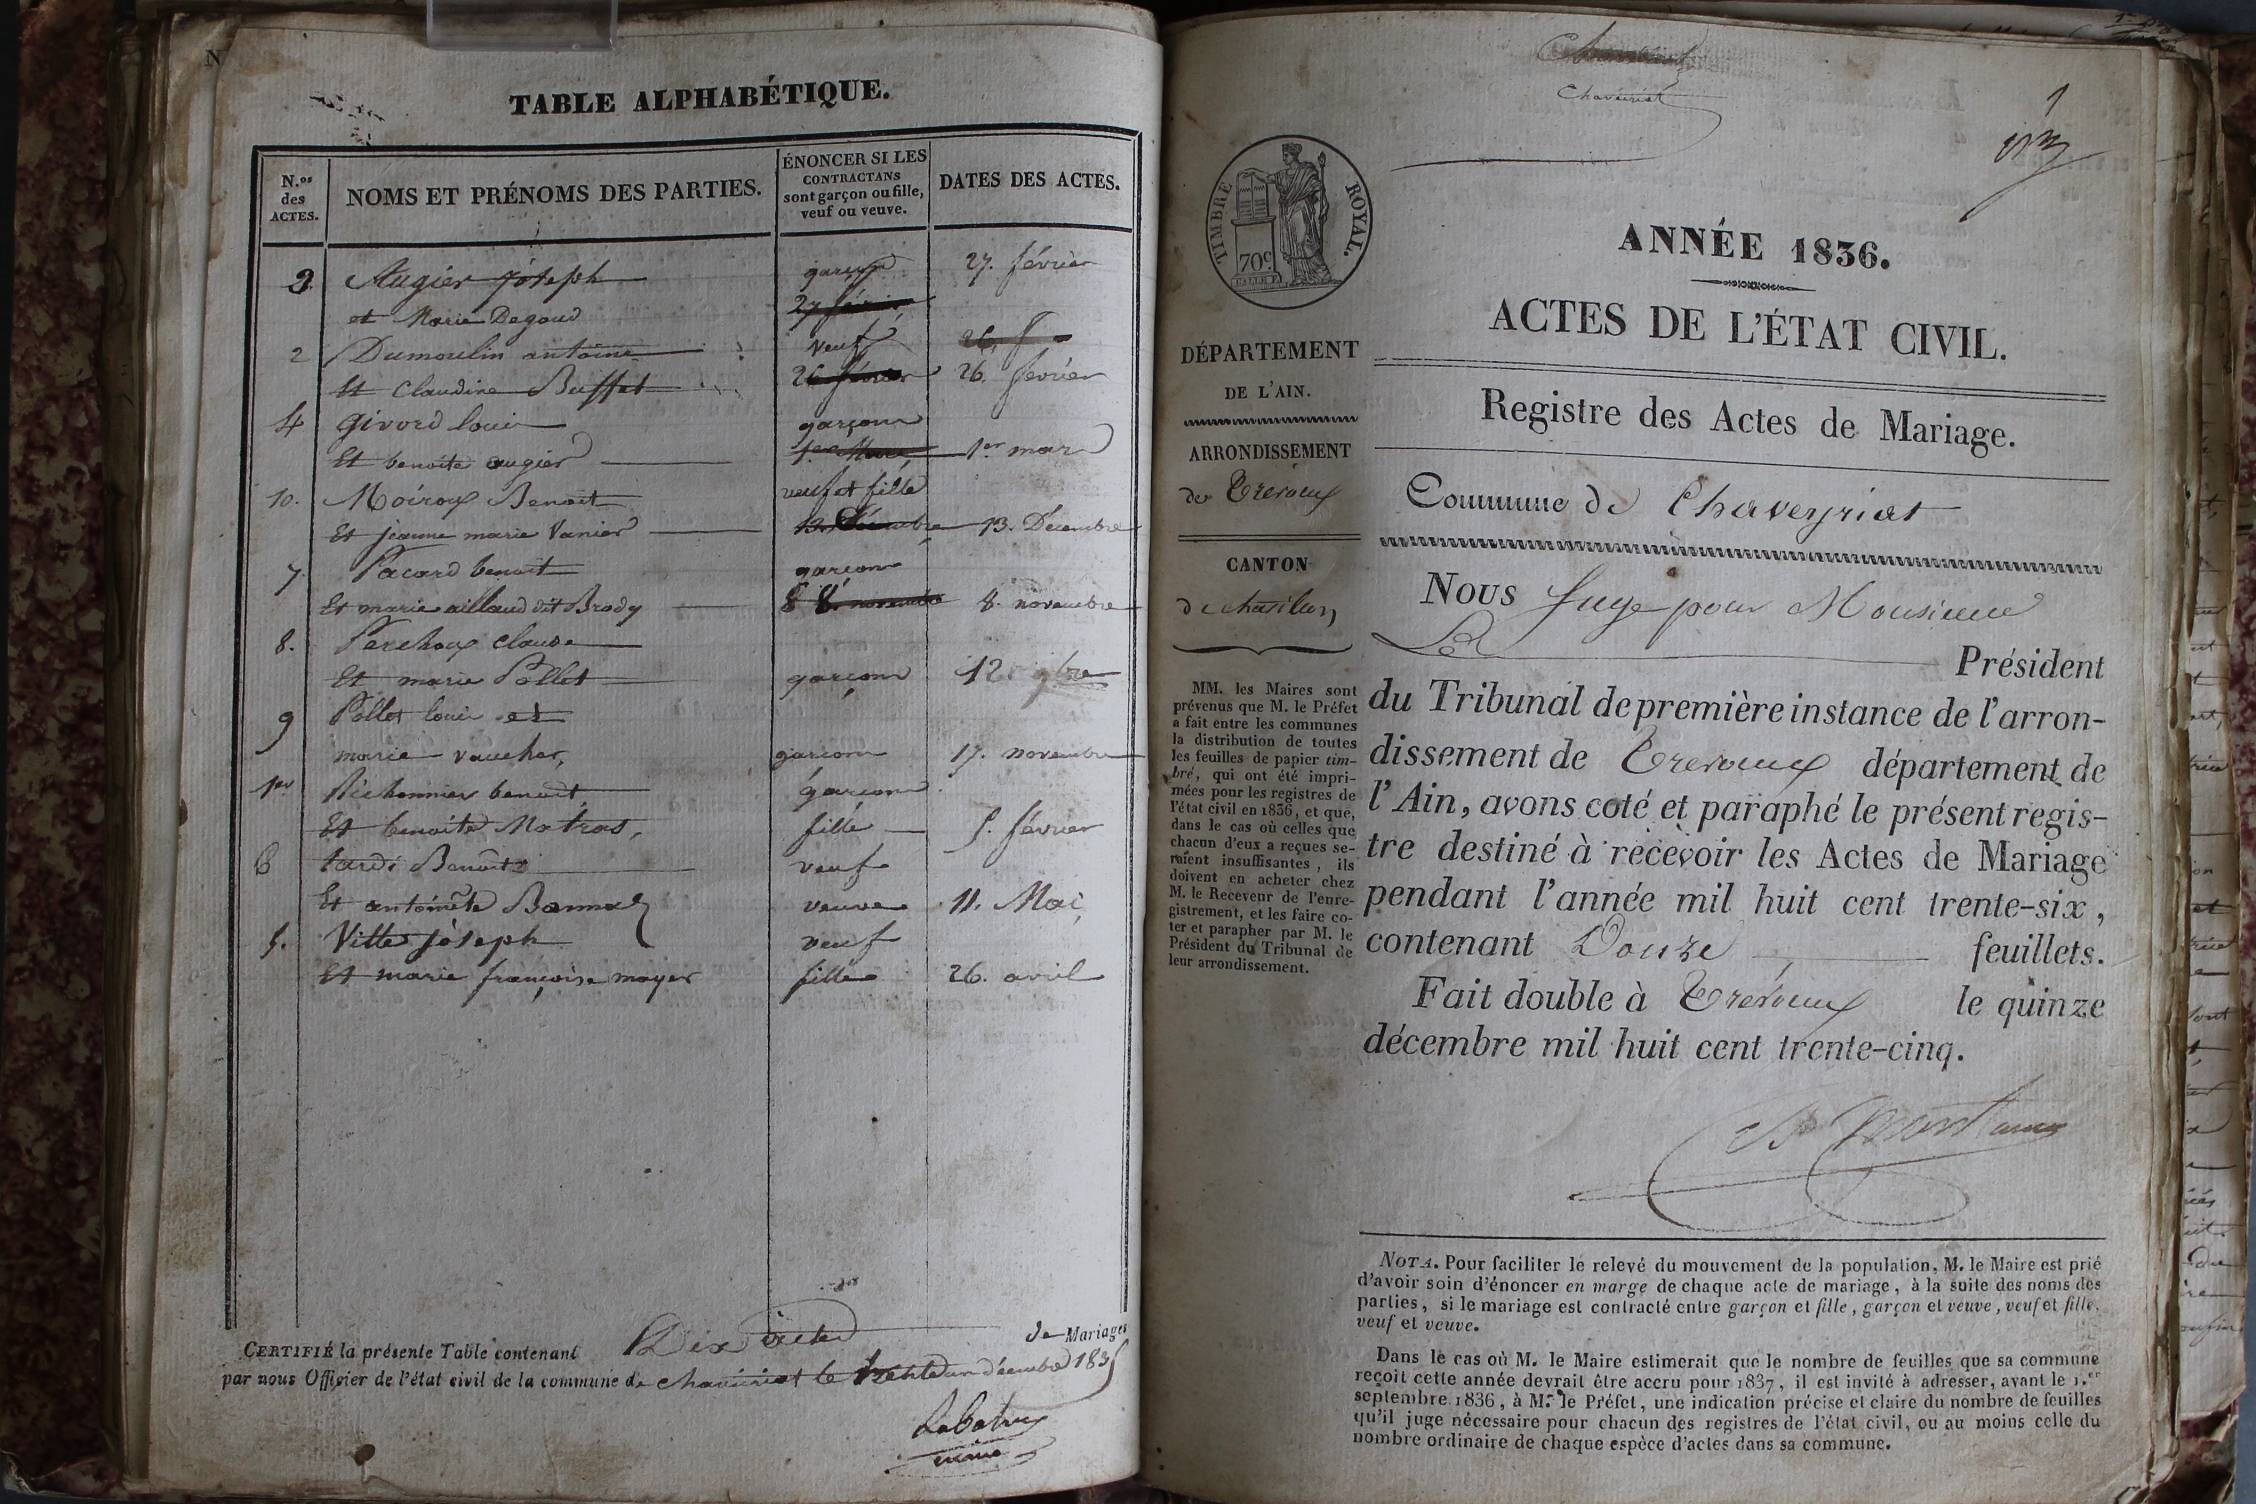 TABLE ALPHABÉTIQUE.
N.os des ACTES.
NOMS ET PRÉNOMS DES PARTIES.
ÉNONCER SI LES CONTRACTANS sont garçon ou fille, veuf ou veuve.
DATES DES ACTES.
3 Augier joseph garçon 27. février
et Marie Degoud 27 février
2 Dumoulin antoine veuf 26. f
Et Claudine Buffet 26 février 26. février
4 Givord louis garçon
Et benoite augier 1er Mars 1er mars
10. Moiroux Benoit veuf et fille
Et jeanne marie Vanier 13. Décembre 13. Décembre
7. Pacard benoit garçon
Et marie aillaud dit Brody 8 8. novembre 8. novembre
8. Perchoux claude
Et marie Pollet garçon 12 9bre
9 Pollet louis et
marie vaucher, garçon 17. novembre
1er Richonnier benoit garçon
Et benoite Matras, fille 5. février
6 tardi Benoit veuf
Et antoinette veuve 11. Mai
5. Ville joseph veuf
Et marie françoise moyer fille 26. avril
CERTIFIÉ la présente Table contenant Dix actes de Mariages
par nous Officier de l'état civil de la commune de chaveiriat le trente un décembre 1835
maire
Chaveiriat
1
ANNÉE 1836.
ACTES DE L'ÉTAT CIVIL.
Registre des Actes de Mariage.
Commune de Chaveyriat
TIMBRE ROYAL.
70c.
DÉPARTEMENT
DE L'AIN.
ARRONDISSEMENT
de Trévoux
CANTON
de chatillon
MM. les Maires sont
prévenus que M. le Préfet
a fait entre les communes
la distribution de toutes
les feuilles de papier tim-
bré, qui ont été impri-
mées pour les registres de
l'état civil en 1836, et que,
dans le cas où celles que
chacun d'eux a reçues se-
raient insuffisantes, ils
doivent en acheter chez
M. le Receveur de l'enre-
gistrement, et les faire co-
ter et parapher par M. le
Président du Tribunal de
leur arrondissement.
Nous Juge pour Monsieur
Le Président
du Tribunal de première instance de l'arron-
dissement de Trevoux département de
l'Ain, avons coté et paraphé le présent regis-
tre destiné à recevoir les Actes de Mariage
pendant l'année mil huit cent trente-six,
contenant Douze feuillets.
Fait double à Trévoux le quinze
décembre mil huit cent trente-cinq.
NOTA. Pour faciliter le relevé du mouvement de la population, M. le Maire est prié
d'avoir soin d'énoncer en marge de chaque acte de mariage, à la suite des noms des
parties, si le mariage est contracté entre garçon et fille, garçon et veuve, veuf et fille,
veuf et veuve.
Dans le cas où M. le Maire estimerait que le nombre de feuilles que sa commune
reçoit cette année devrait être accru pour 1837, il est invité à adresser, avant le 1.er
septembre 1836, à M. le Préfet, une indication précise et claire du nombre de feuilles
qu'il juge nécessaire pour chacun des registres de l'état civil, ou au moins celle du
nombre ordinaire de chaque espèce d'actes dans sa commune.